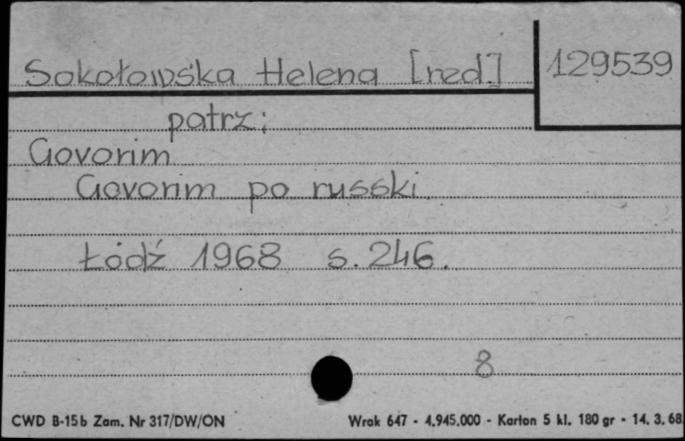 Sokołowska Helena [red.] 129539
patrz:
Govorim
Govorim po russki
Łódź 1968 s. 246.
8
CWD B-15b Zam. Nr 317/DW/ON Wrak 647 - 4.945.000 - Karton 5 kl. 180 gr - 14. 3. 68